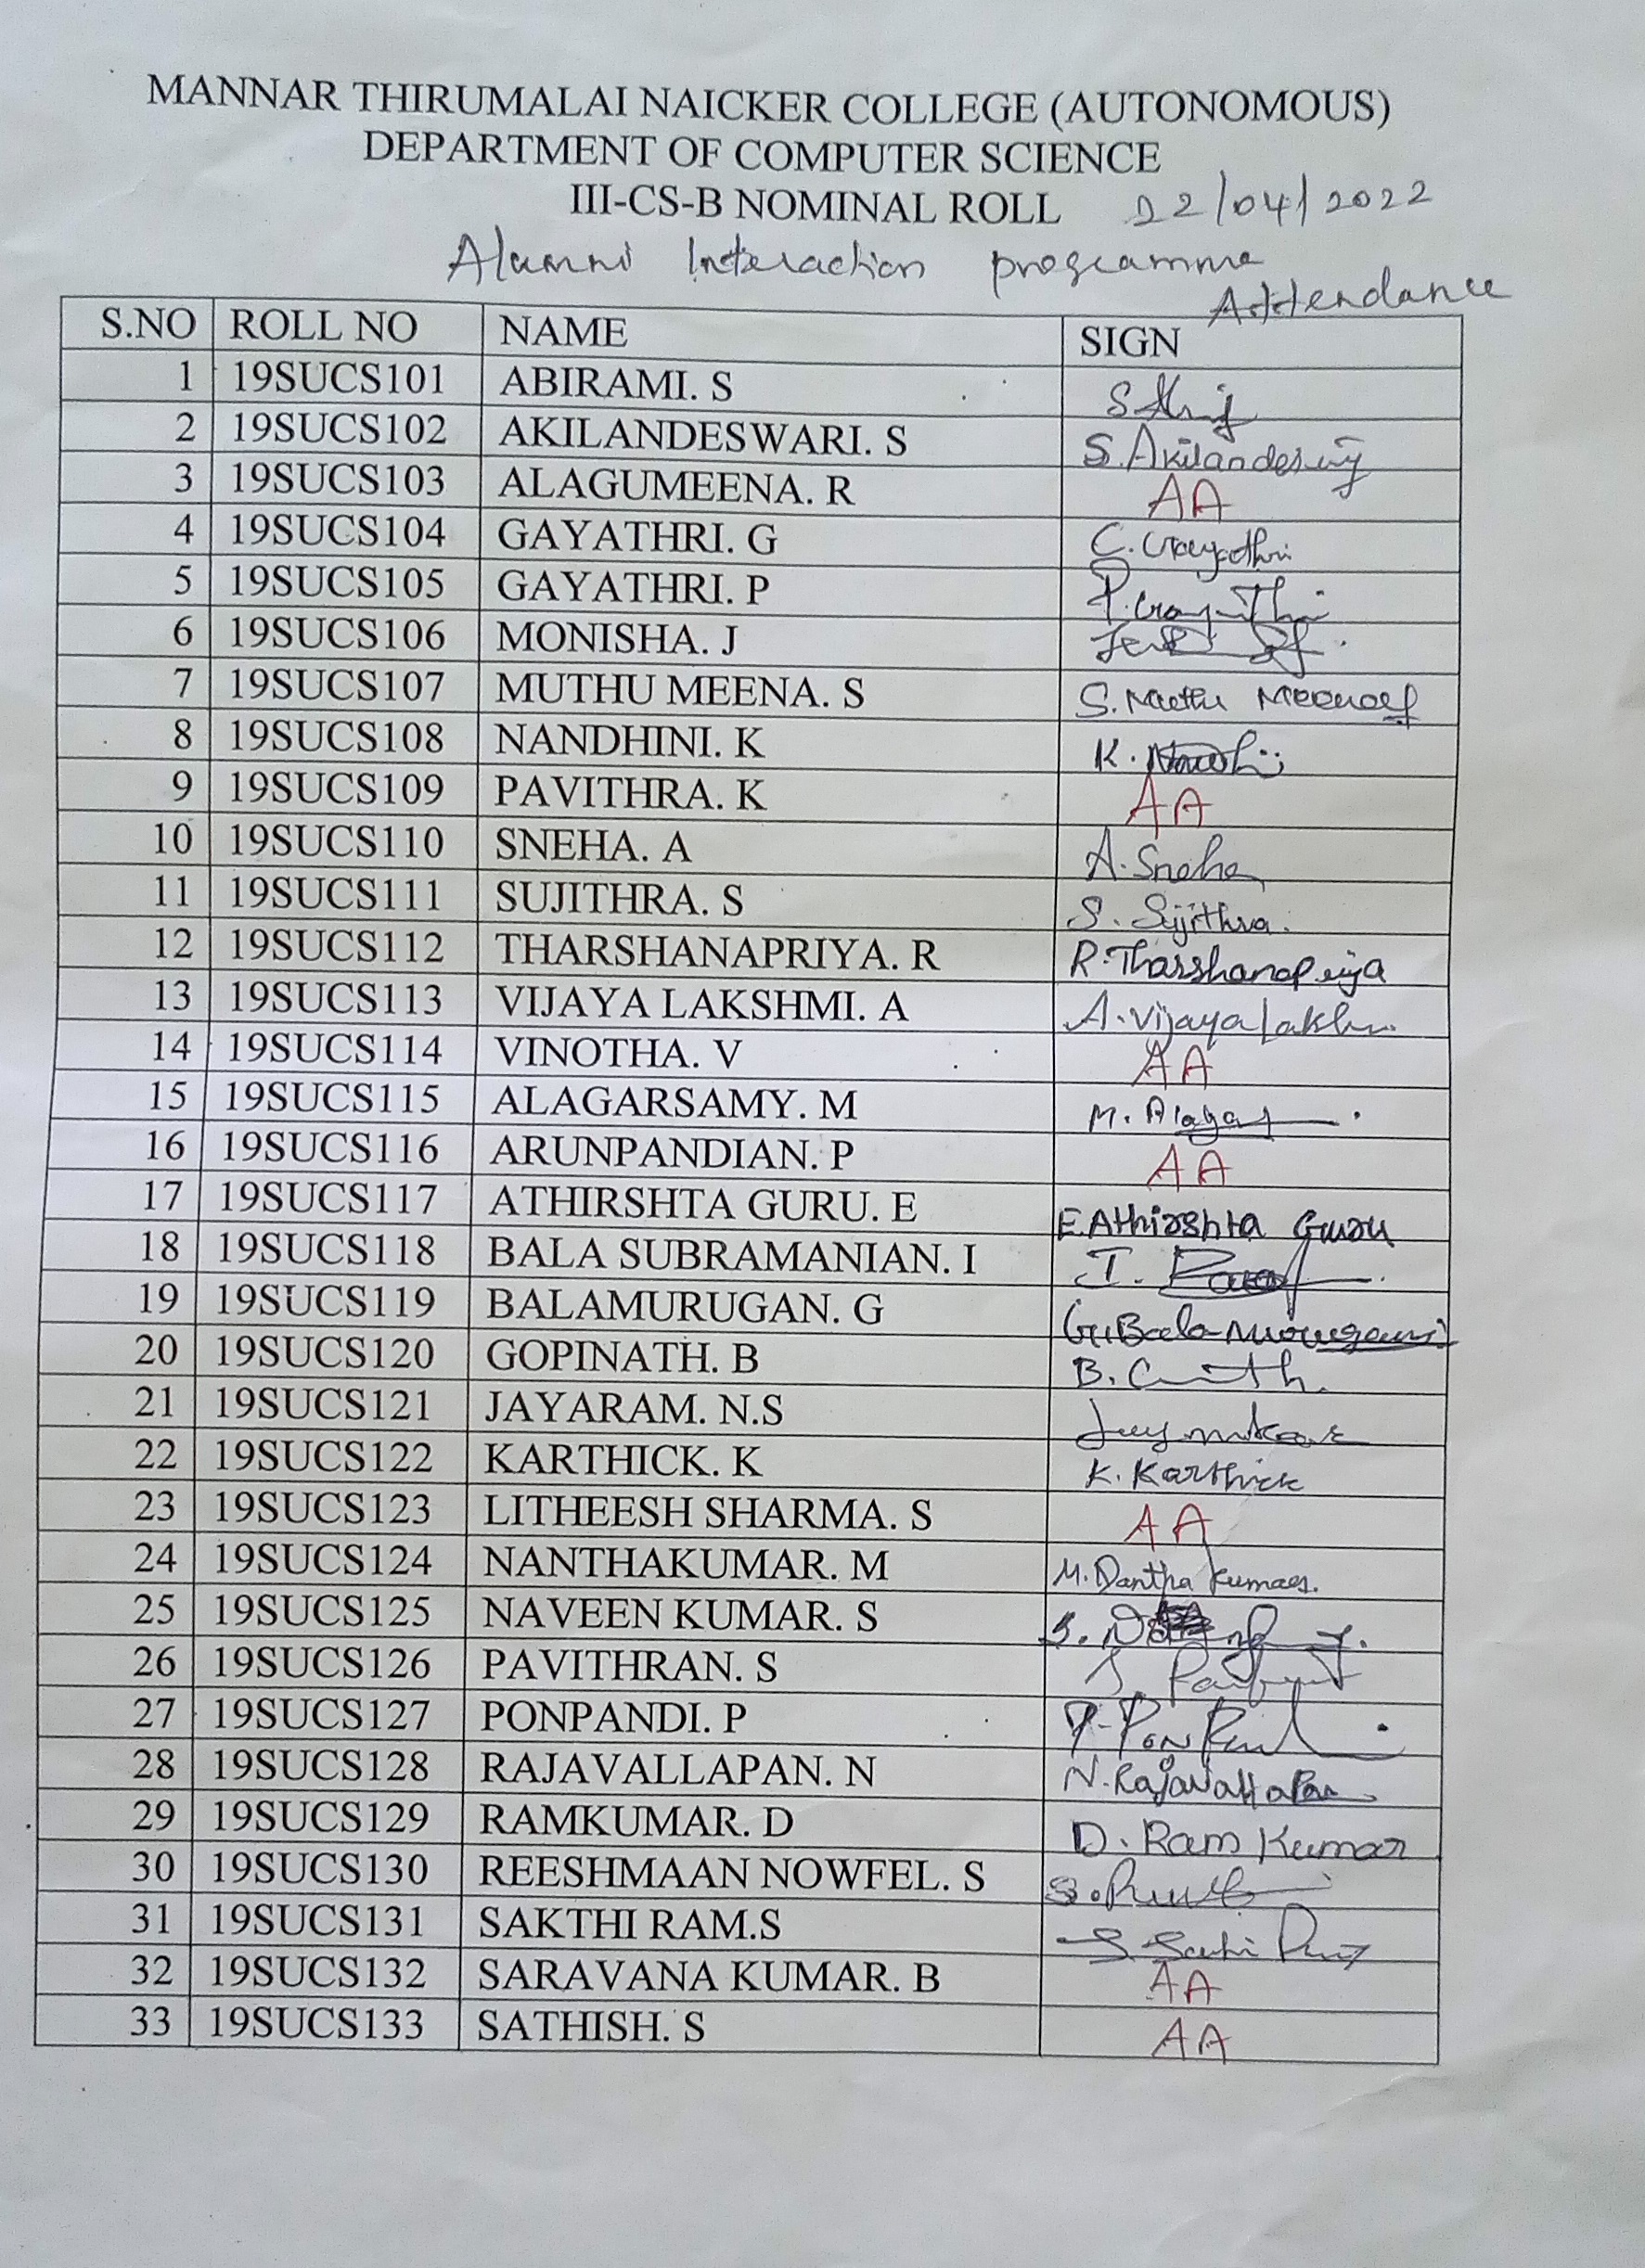 MANNAR THIRUMALAI NAICKER COLLEGE (AUTONOMOUS)
DEPARTMENT OF COMPUTER SCIENCE
III-CS-B NOMINAL ROLL 22/04/2022
Alumni Interaction programme
Attendance
S.NO ROLL NO NAME SIGN
1 19SUCS101 ABIRAMI. S
2 19SUCS102 AKILANDESWARI. S S.Akilandeswy
3 19SUCS103 ALAGUMEENA. R AA
4 19SUCS104 GAYATHRI. G G.Gayathri
5 19SUCS105 GAYATHRI. P P.Gayathri
6 19SUCS106 MONISHA. J
7 19SUCS107 MUTHU MEENA. S S.Muthu Meena
8 19SUCS108 NANDHINI. K K.
9 19SUCS109 PAVITHRA. K AA
10 19SUCS110 SNEHA. A A.Sneha
11 19SUCS111 SUJITHRA. S S.Sujithra.
12 19SUCS112 THARSHANAPRIYA. R R.Tharshanapriya
13 19SUCS113 VIJAYA LAKSHMI. A A.Vijayalakshmi
14 19SUCS114 VINOTHA. V AA
15 19SUCS115 ALAGARSAMY. M M. Alagar
16 19SUCS116 ARUNPANDIAN. P AA
17 19SUCS117 ATHIRSHTA GURU. E E.Athirshta Guru
18 19SUCS118 BALA SUBRAMANIAN. I I.
19 19SUCS119 BALAMURUGAN. G G.Balamurugan
20 19SUCS120 GOPINATH. B B.
21 19SUCS121 JAYARAM. N.S
22 19SUCS122 KARTHICK. K K.Karthick
23 19SUCS123 LITHEESH SHARMA. S AA
24 19SUCS124 NANTHAKUMAR. M M.Nantha Kumar.
25 19SUCS125 NAVEEN KUMAR. S S.
26 19SUCS126 PAVITHRAN. S S.
27 19SUCS127 PONPANDI. P P.
28 19SUCS128 RAJAVALLAPAN. N N.Rajavallapan
29 19SUCS129 RAMKUMAR. D D. Ram Kumar
30 19SUCS130 REESHMAAN NOWFEL. S S.
31 19SUCS131 SAKTHI RAM.S S.
32 19SUCS132 SARAVANA KUMAR. B AA
33 19SUCS133 SATHISH. S AA